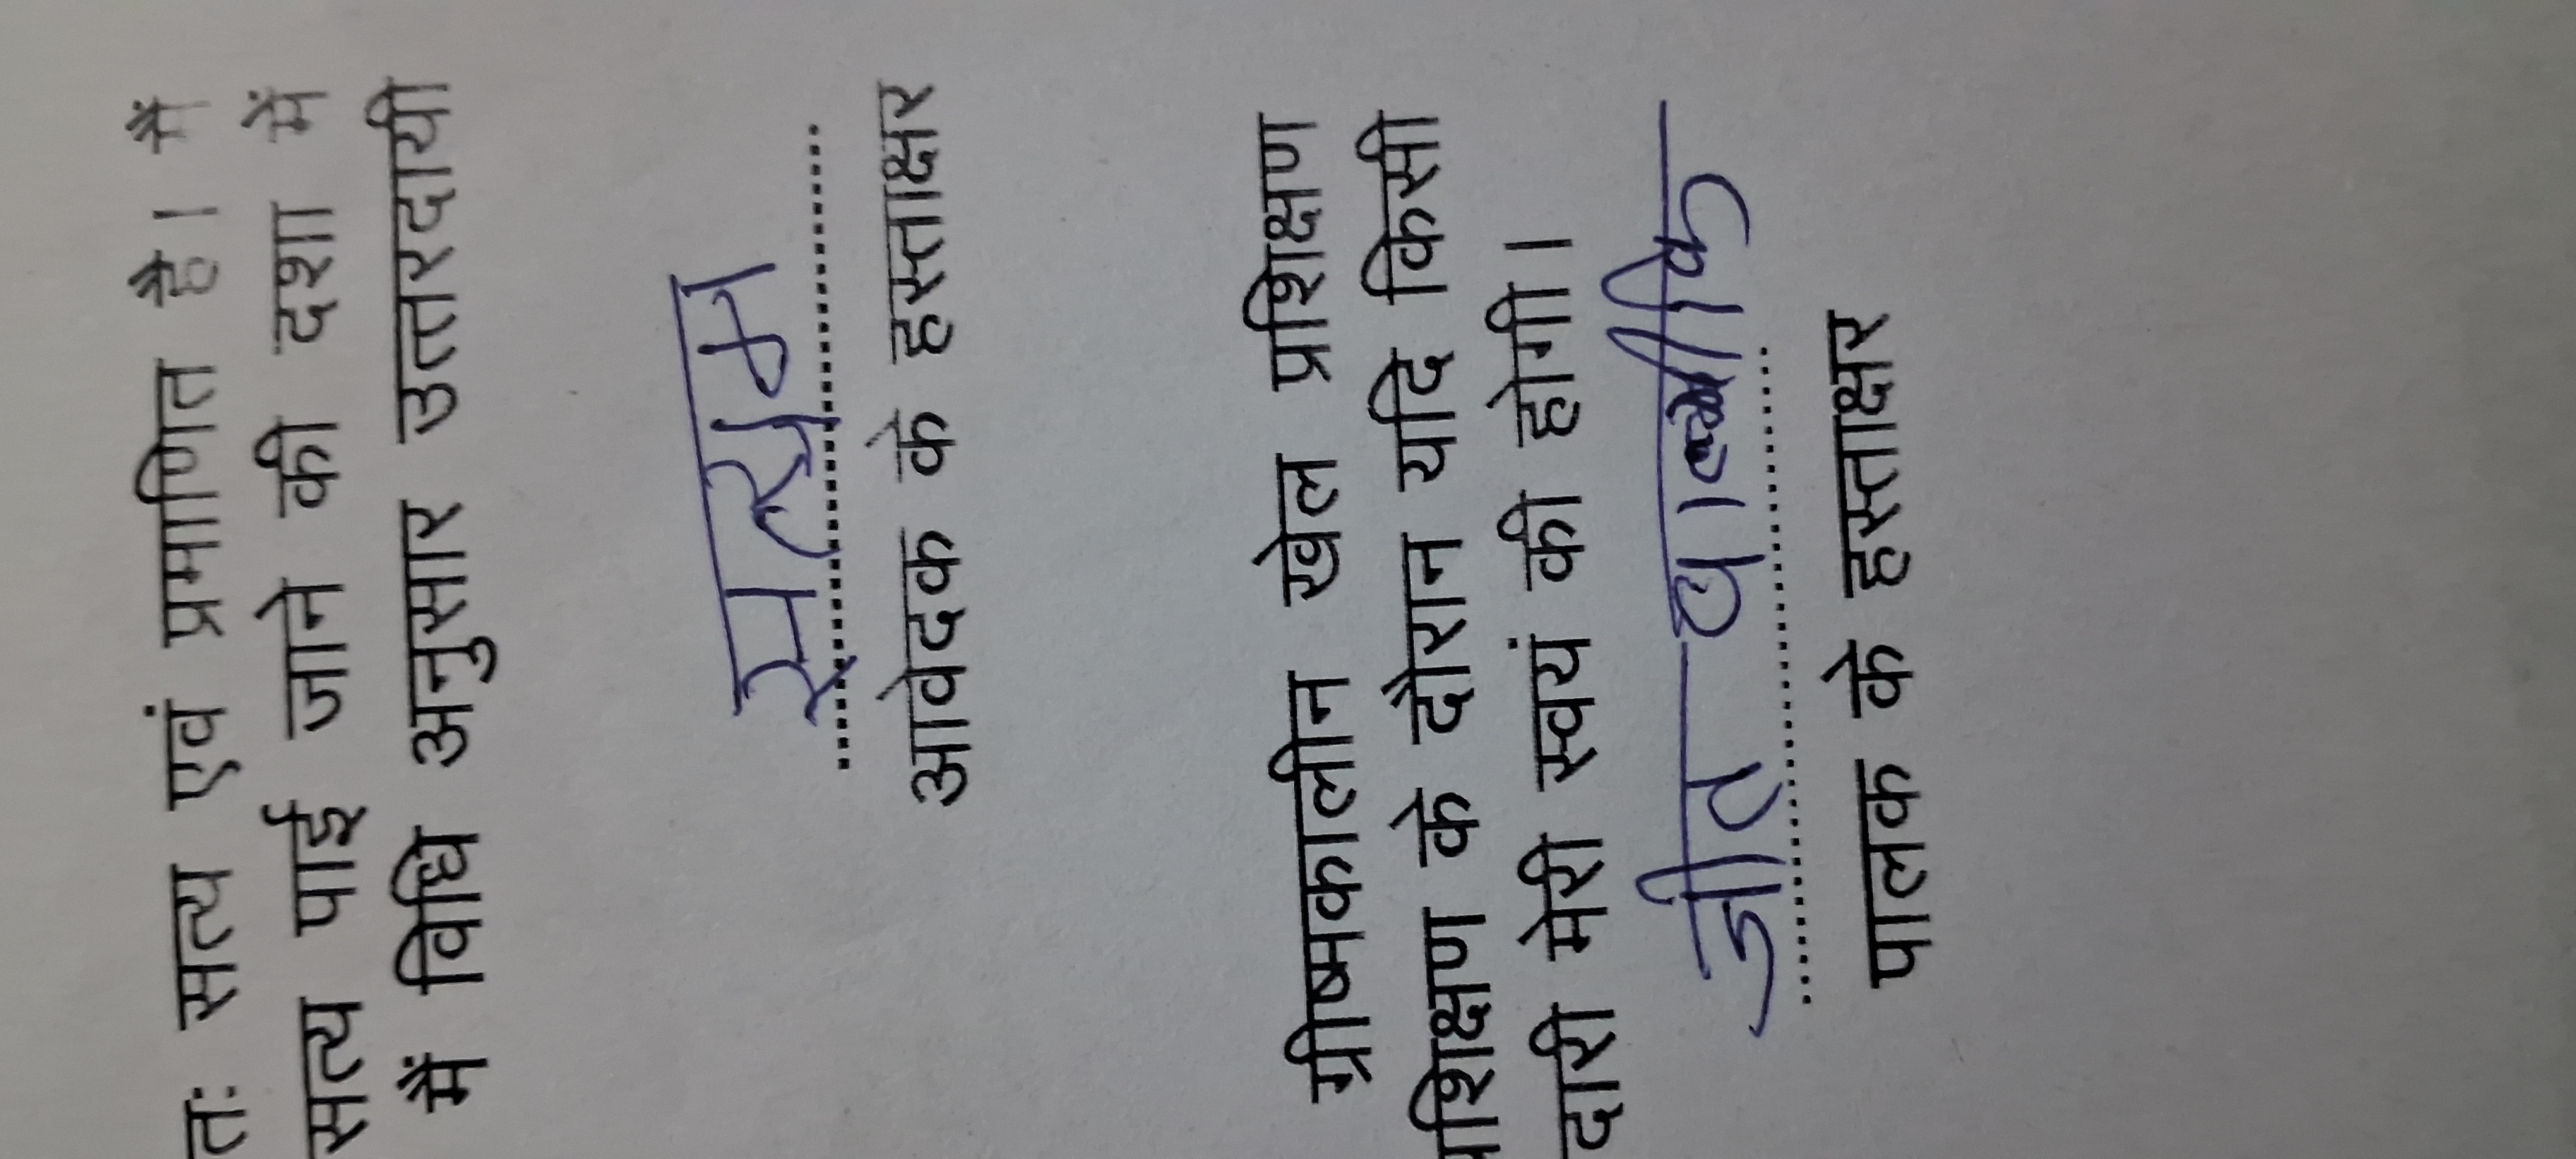 तः सत्य एवं प्रमाणित है। मैं
सत्य पाई जाने की दशा में
में विधि अनुसार उत्तरदायी
सत्यम
....................
आवेदक के हस्ताक्षर
ग्रीष्मकालीन खेल प्रशिक्षण
प्रशिक्षण के दौरान यदि किसी
दारी मेरी स्वयं की होगी।
जीत
....................
पालक के हस्ताक्षर